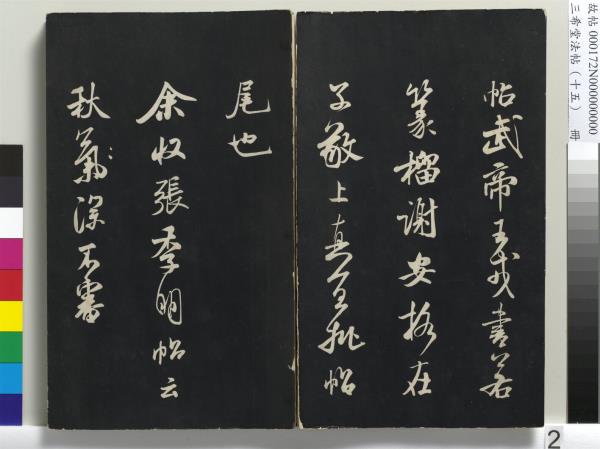 帖武帝王戎書若
篆籀謝安格在
子敬上真宜批帖
尾也
余收張季明帖云
秋氣深不審
故帖 000172N000000000
三希堂法帖（十五） 冊
2